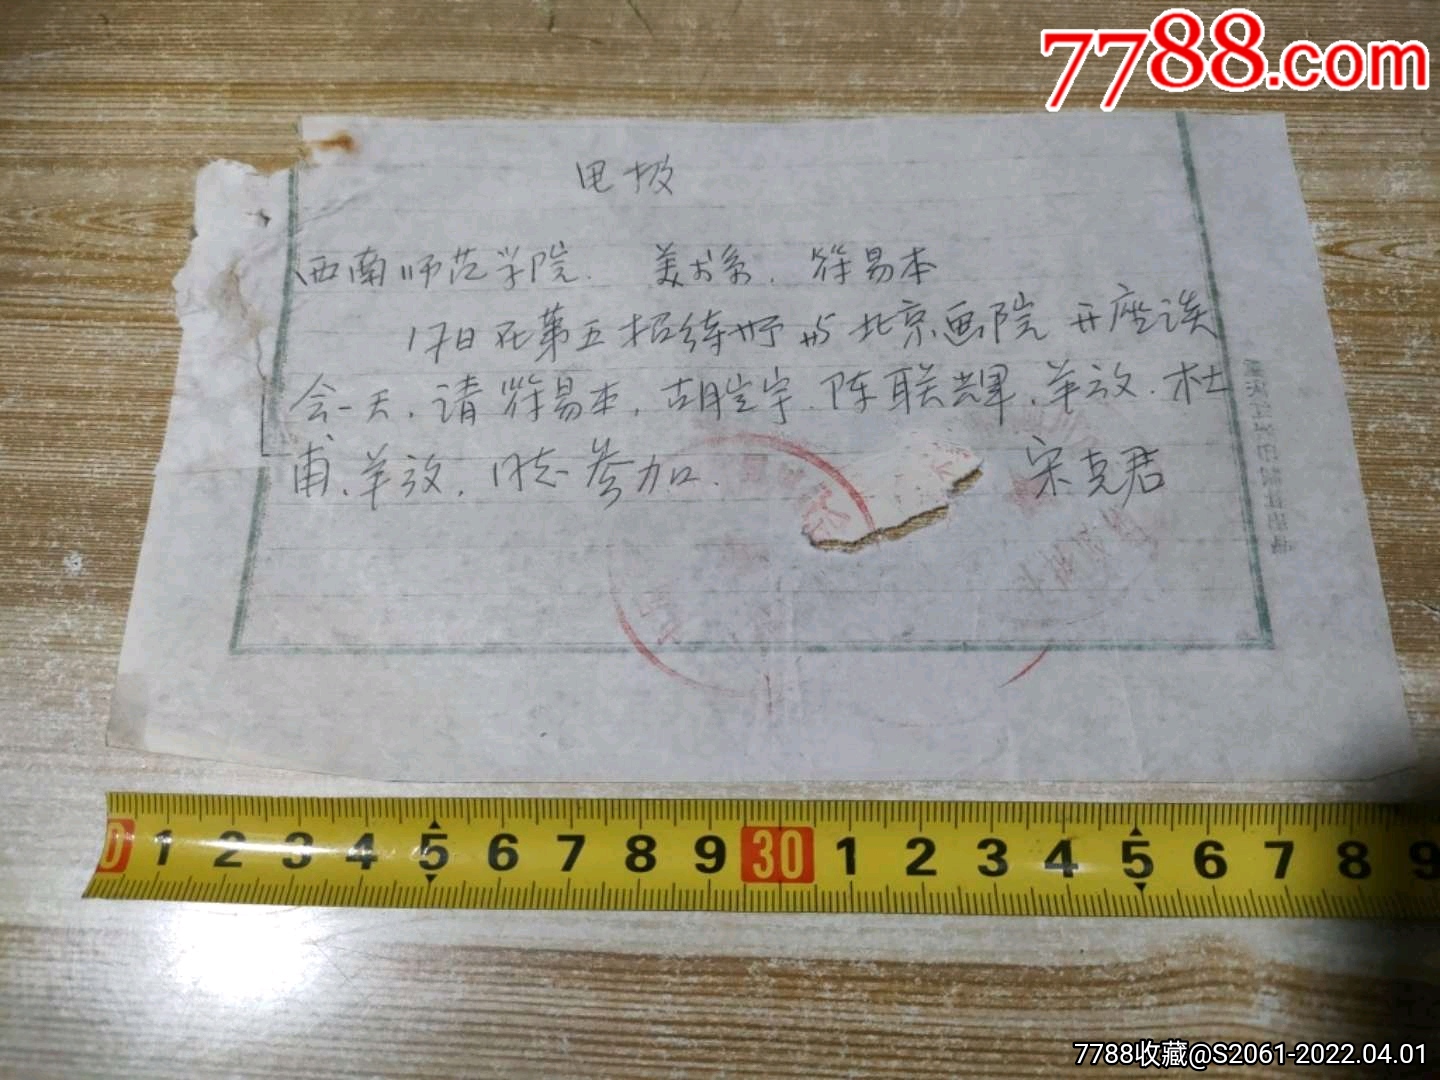 7788.com
电报
西南师范学院. 美术系. 符易本
17日在第五招待所与北京画院开座谈
会一天. 请符易本. 胡 宇. 陈联辉. 羊放. 杜
甫. 羊放. 同志参加.
宋克君
0 1 2 3 4 5 6 7 8 9 30 1 2 3 4 5 6 7 8 9
7788收藏@S2061-2022.04.01